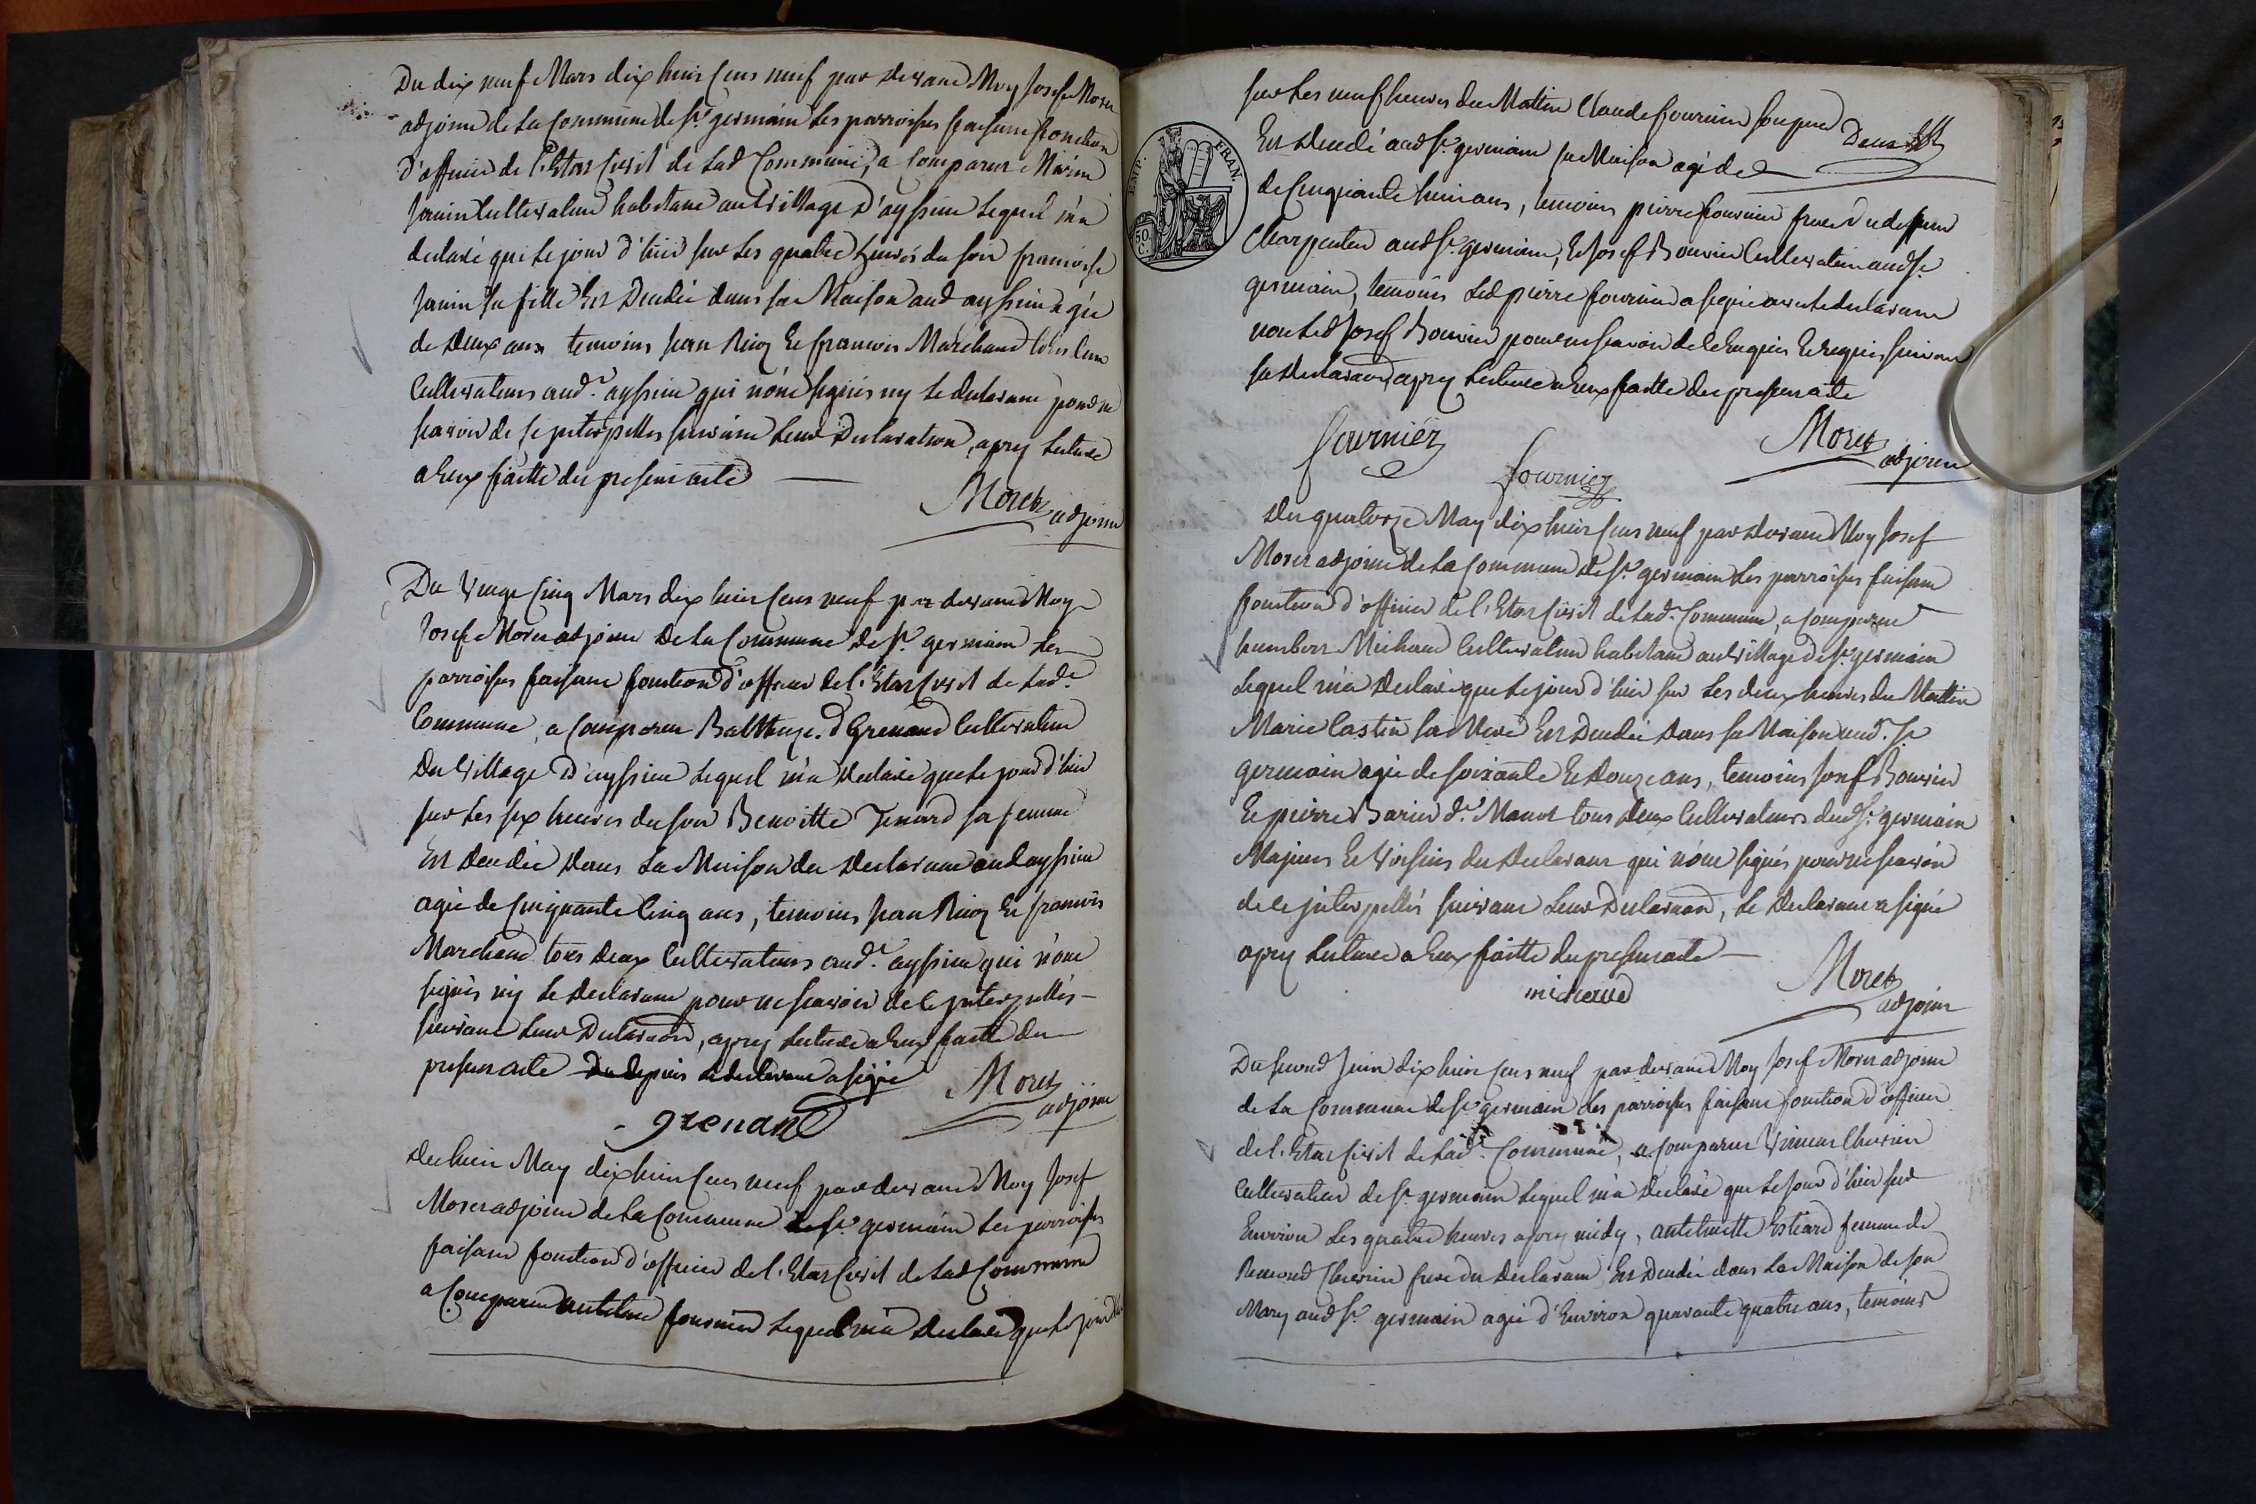 Du dix neuf Mars dix huit Cens neuf par devant Moy Josef Moret
adjoint de La Commune de St. germain Les parroisses faisant fonction
d'officier de l'Etat Civil de Lad Commune, a Comparut
Janin Cultivateur habitant au Village d'ayssieu Lequel m'a
declaré que Le jour d'hier sur Les quatre heures du soir francoise
Janin sa fille Est Decedée dans sa Maison aud ayssieu agée
de Deux ans temoins Jean Et francois Marchand tous Deux
Cultivateurs aud. ayssieu qui n'ont signés ny Le declarant pour ne
scavoir de ce interpellés suivant Leur Declaration, apres Lecture
a Eux faitte du present acte
Moret adjoint
Du Vingt Cinq Mars dix huit Cens neuf par devant Moy
Josef Moret adjoint De La Commune de St. germain Les
parroisses faisant fonction d'officier de l'Etat Civil de Lad.
Commune, a Comparut Balthaze. d Grenand Cultivateur
Du Village d'ayssieu Lequel m'a declaré que Le jour d'hier
sur Les six heures du soir Benoitte sa femme
Est decedée Dans La Maison du declarant aud ayssieu
agée de Cinquante Cinq ans, temoins Jean Et francois
Marchand tous deux Cultivateurs aud. ayssieu qui n'ont
signés ny Le declarant pour ne scavoir de ce interpellés
suivant Leur Declaration, apres Lecture a Eux faitte du
present acte Du depuis Le declarant a signé
Moret adjoint
grenand
Du huit May dix huit Cens neuf par devant Moy Josef
Moret adjoint de La Commune de St. germain Les parroisses
faisant fonction d'officier de l'Etat Civil de Lad Commune
a Comparut fournier Lequel m'a declaré que Le jour
EMP. FRAN.
50 C.
sur Les neuf heures du Mattin Claude fournier son pere
Est Decedé aud St. germain sa Maison agé de
de Cinquante huit ans, temoins pierre fournier frere du defunt
Charpentier aud St. germain, Et Josef Bouvier Cultivateur aud St.
germain, temoins Led pierre fournier a signé avec Le declarant
non Led Josef Bouvier pour ne scavoir de ce Enquis Et requis suivant
sa Declaration apres Lecture a Eux faitte du present acte
fournier
fournier
Moret adjoint
Du quatorze May dix huit Cens neuf par devant Moy Josef
Moret adjoint de La Commune de St. germain Les parroisses faisant
fonction d'officier de l'Etat Civil de Lad. Commune, a Comparut
humbert Michaud Cultivateur habitant au Village de St. germain
Lequel m'a declaré que Le jour d'hier sur Les deux heures du Mattin
Marie Castin sa Mere Est Decedée Dans sa Maison aud. St.
germain agée de soixante Et douze ans, temoins Josef Bouvier
Et pierre Barier d. Manot tous deux Cultivateurs dud St. germain
Majeurs Et Voisins du Declarant qui n'ont signés pour ne scavoir
de ce interpellés suivant Leur Declaration, Le Declarant a signé
apres Lecture a Eux faitte du present acte
michaud
Moret adjoint
Du second Juin dix huit Cens neuf par devant Moy Josef Moret adjoint
de La Commune de St. germain Les parroisses faisant fonction d'officier
de l'Etat Civil de Lad. Commune, a Comparut Vincent Chevrier
Cultivateur de St. germain Lequel m'a declaré que Le jour d'hier sur
Environ Les quatre heures apres midy, femme de
Remond Chevrier frere du declarant Est Decedée dans La Maison de son
Mary aud St. germain agée d'Environ quarante quatre ans, temoins